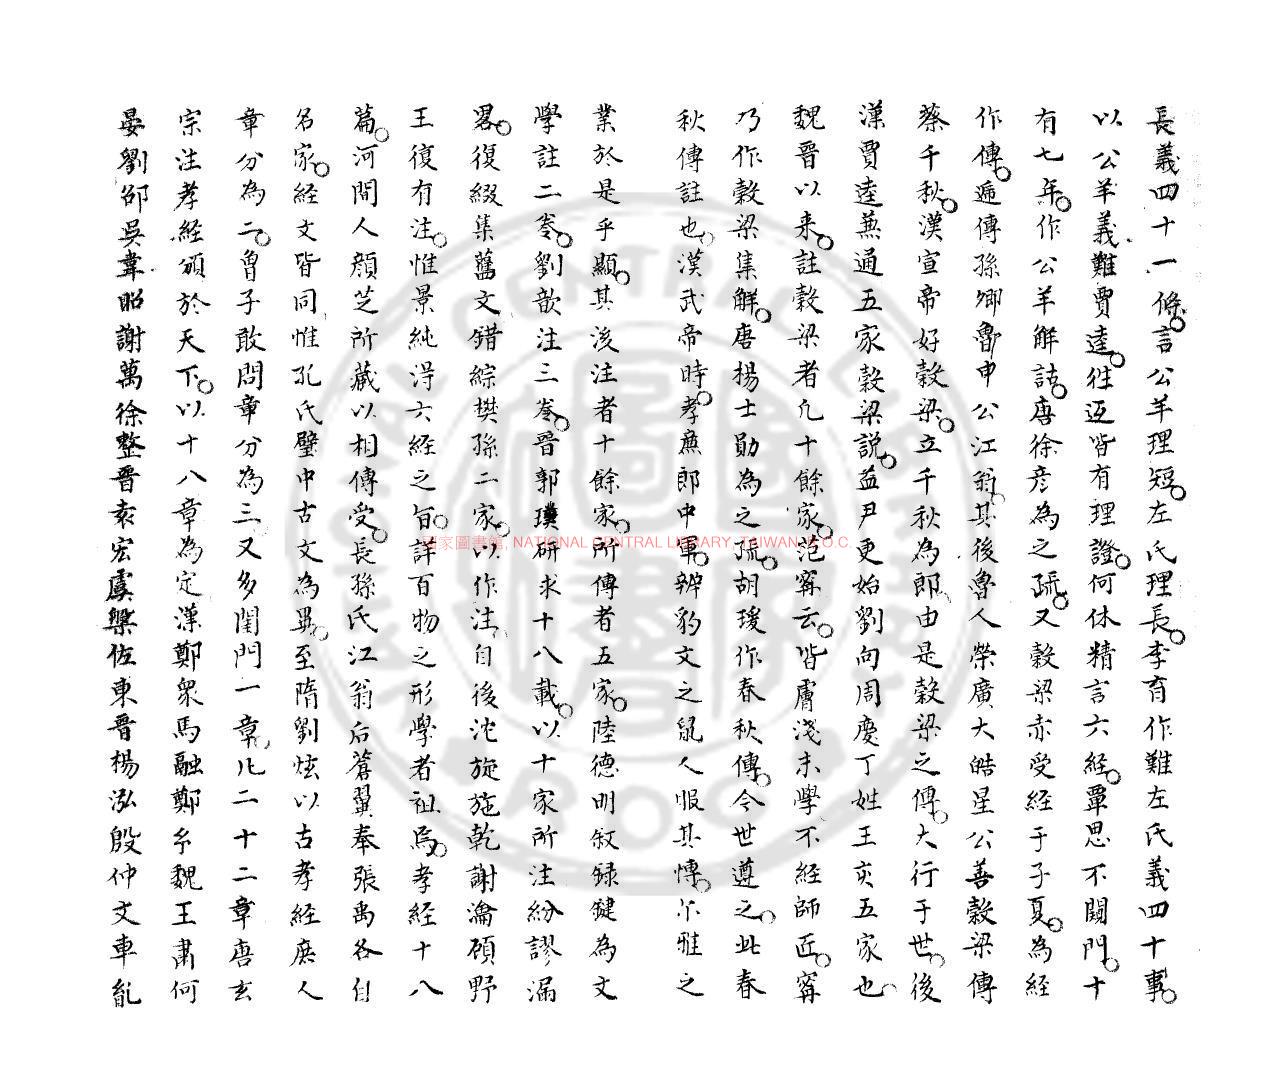 長義四十一條言公羊理短左氏理長李育作難左氏義四十事
以公羊義難賈逵逵往返皆有理證何休精言六經覃思不闚門十
有七年作公羊解詁唐徐彦為之疏又穀梁赤受經于子夏為經
作傳遞傳孫卿魯申公江翁其後魯人榮廣大皓星公善穀梁傳
蔡千秋漢宣帝好穀梁立千秋為郎由是穀梁之傳大行于世後
漢賈逵兼通五家穀梁說益尹更始劉向周慶丁姓王亥五家也
魏晉以来註穀梁者凢十餘家范寗云皆膚淺末學不經師匠寗
乃作穀梁集解唐楊士勛為之疏胡瑗作春秋傳今世遵之此春
秋傳註也漢武帝時孝廉郎中軍辨豹文之鼠人服其慱尓雅之
業於是乎顯其後注者十餘家所傳者五家陸德明叙録鍵為文
學註二卷劉歆注三卷晉郭璞研求十八載以十家所注紛謬漏
畧復綴集舊文錯綜樊孫二家以作注自後沈旋施乾謝瀹顧野
王復有注惟景純淂六經之旨詳百物之形學者祖焉孝經十八
篇河間人顔芝所藏以相傳受長孫氏江翁后蒼翼奉張禹各自
名家經文皆同惟孔氏壁中古文為異至隋劉炫以古孝經庶人
章分為二曾子敢問章分為三又多閨門一章凡二十二章唐玄
宗注孝經頒於天下以十八章為定漢鄭衆馬融鄭玄魏王肅何
晏劉邵吳韋昭謝萬徐整晉袁宏虞槃佐東晉楊泓殷仲文車胤